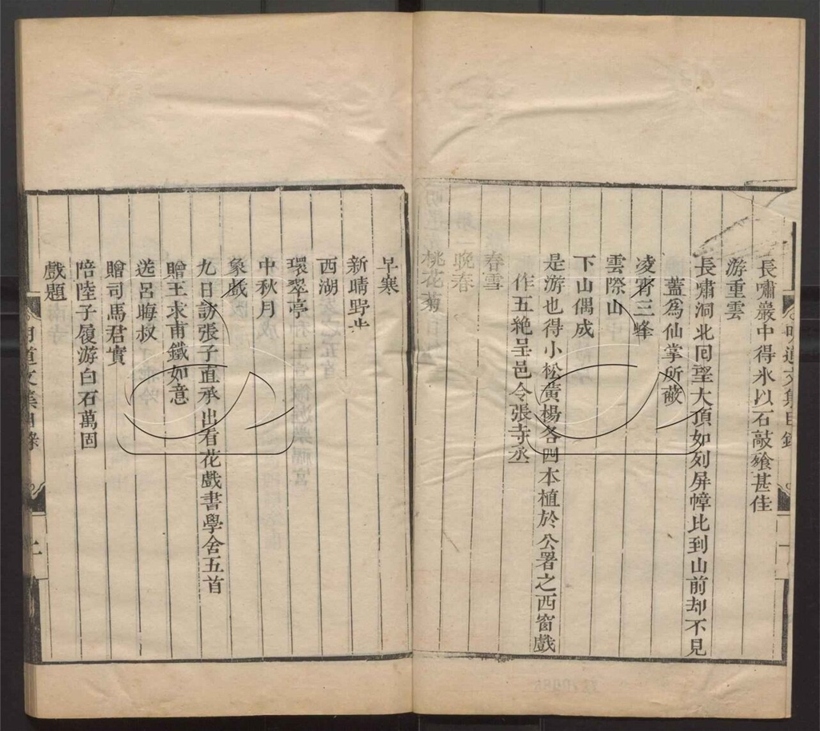 長嘯巖中得氷以石敲飱甚佳
游重雲
長嘯洞北回望大頂如列屏幛比到山前却不見
蓋為仙掌所蔽
凌霄三峰
雲際山
下山偶成
是游也得小松黃楊各四本植於公署之西窗戲
作五絶呈邑令張寺丞
春雪
晩春
桃花菊
早寒
新晴野步
西湖
環翠亭
中秋月
象戲
九日訪張子直承出看花戲書學舍五首
贈王求甫鐵如意
送呂晦叔
贈司馬君實
陪陸子履游白石萬固
戲題
明道文集目錄